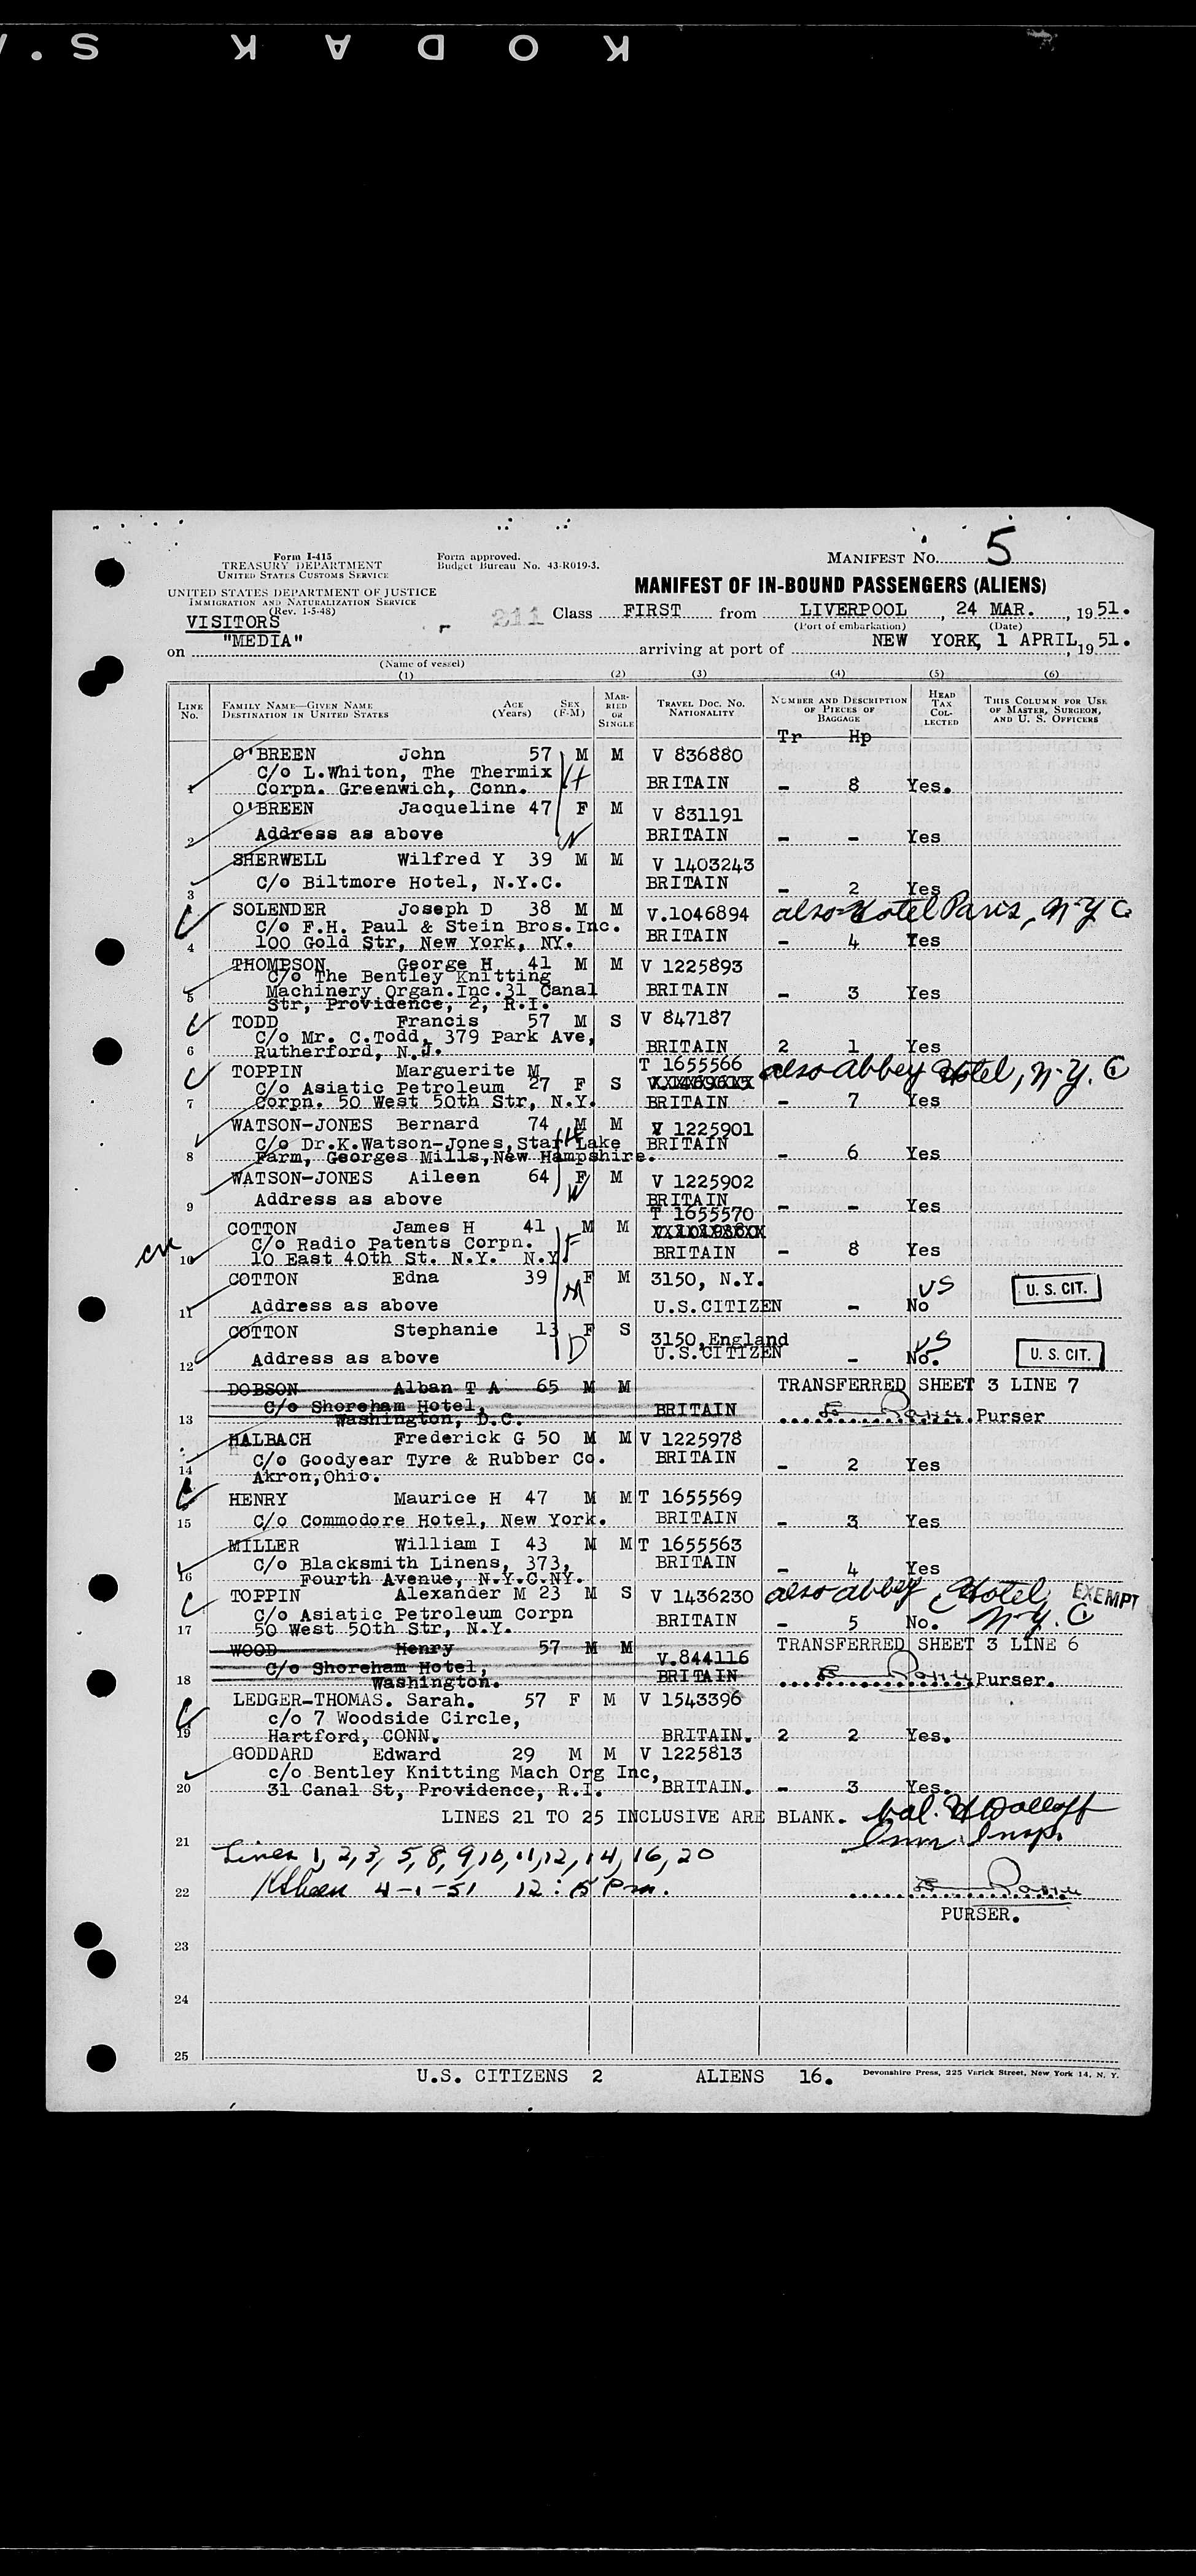 KODAK S.
Form I-415
TREASURY DEPARTMENT
UNITED STATES CUSTOMS SERVICE
UNITED STATES DEPARTMENT OF JUSTICE
IMMIGRATION AND NATURALIZATION SERVICE
(Rev. 1-5-48)
Form approved.
Budget Bureau No. 43-R019-3.
MANIFEST NO. 5
MANIFEST OF IN-BOUND PASSENGERS (ALIENS)
VISITORS
211 Class FIRST from LIVERPOOL, 24 MAR., 1951.
(Port of embarkation) (Date)
on "MEDIA" arriving at port of NEW YORK, 1 APRIL, 1951.
(Name of vessel)
(1) (2) (3) (4) (5) (6)
LINE NO. FAMILY NAME—GIVEN NAME DESTINATION IN UNITED STATES AGE (Years) SEX (F-M) MARRIED OR SINGLE TRAVEL DOC. NO. NATIONALITY NUMBER AND DESCRIPTION OF PIECES OF BAGGAGE HEAD TAX COLLECTED THIS COLUMN FOR USE OF MASTER, SURGEON, AND U. S. OFFICERS
Tr Hp
O'BREEN John 57 M M V 836880
C/o L.Whiton, The Thermix H
1 Corpn. Greenwich, Conn. BRITAIN - 8 Yes.
O'BREEN Jacqueline 47 F M V 831191
2 Address as above W BRITAIN - - Yes
SHERWELL Wilfred Y 39 M M V 1403243
3 C/o Biltmore Hotel, N.Y.C. BRITAIN - 2 Yes
SOLENDER Joseph D 38 M M V.1046894 also Hotel Paris, N.Y.C.
C/o F.H. Paul & Stein Bros.Inc.
4 100 Gold Str, New York, NY. BRITAIN - 4 Yes
THOMPSON George H 41 M M V 1225893
C/o The Bentley Knitting
5 Machinery Organ.Inc.31 Canal BRITAIN - 3 Yes
Str, Providence, 2, R.I.
TODD Francis 57 M S V 847187
C/o Mr. C.Todd, 379 Park Ave,
6 Rutherford, N.J. BRITAIN 2 1 Yes
TOPPIN Marguerite M T 1655566 also Abbey Hotel, N.Y.C
C/o Asiatic Petroleum 27 F S
7 Corpn. 50 West 50th Str, N.Y. BRITAIN - 7 Yes
WATSON-JONES Bernard 74 M M V 1225901
C/o Dr.K.Watson-Jones,Star Lake H BRITAIN
8 Farm, Georges Mills,New Hampshire. - 6 Yes
WATSON-JONES Aileen 64 F M V 1225902
9 Address as above W BRITAIN - - Yes
COTTON James H 41 M M T 1655570
C/o Radio Patents Corpn. F
10 10 East 40th St. N.Y. N.Y. BRITAIN - 8 Yes
COTTON Edna 39 F M 3150, N.Y. US U. S. CIT.
11 Address as above M U.S.CITIZEN - No
COTTON Stephanie 13 F S 3150,England US U. S. CIT.
12 Address as above D U.S.CITIZEN - No.
DOBSON Alban T A 65 M M TRANSFERRED SHEET 3 LINE 7
C/o Shoreham Hotel,
13 Washington, D.C. BRITAIN Purser
HALBACH Frederick G 50 M M V 1225978
C/o Goodyear Tyre & Rubber Co. BRITAIN
14 Akron,Ohio. - 2 Yes
HENRY Maurice H 47 M M T 1655569
15 C/o Commodore Hotel, New York. BRITAIN - 3 Yes
MILLER William I 43 M M T 1655563
C/o Blacksmith Linens, 373, BRITAIN
16 Fourth Avenue, N.Y.C.NY. - 4 Yes
TOPPIN Alexander M 23 M S V 1436230 also Abbey Hotel N.Y.C EXEMPT
C/o Asiatic Petroleum Corpn
17 50 West 50th Str, N.Y. BRITAIN - 5 No.
WOOD Henry 57 M M V.844116 TRANSFERRED SHEET 3 LINE 6
C/o Shoreham Hotel,
18 Washington. BRITAIN Purser.
LEDGER-THOMAS. Sarah. 57 F M V 1543396
c/o 7 Woodside Circle,
19 Hartford, CONN. BRITAIN. 2 2 Yes.
GODDARD Edward 29 M M V 1225813
c/o Bentley Knitting Mach Org Inc,
20 31 Canal St, Providence, R.I. BRITAIN. - 3 Yes.
LINES 21 TO 25 INCLUSIVE ARE BLANK.
Imm. Insp.
21
Lines 1, 2, 3, 5, 8, 9, 10, 11, 12, 14, 16, 20
22 4-1-51 12:15 Pm.
PURSER.
23
24
25
U.S. CITIZENS 2 ALIENS 16.
Devonshire Press, 225 Varick Street, New York 14, N. Y.